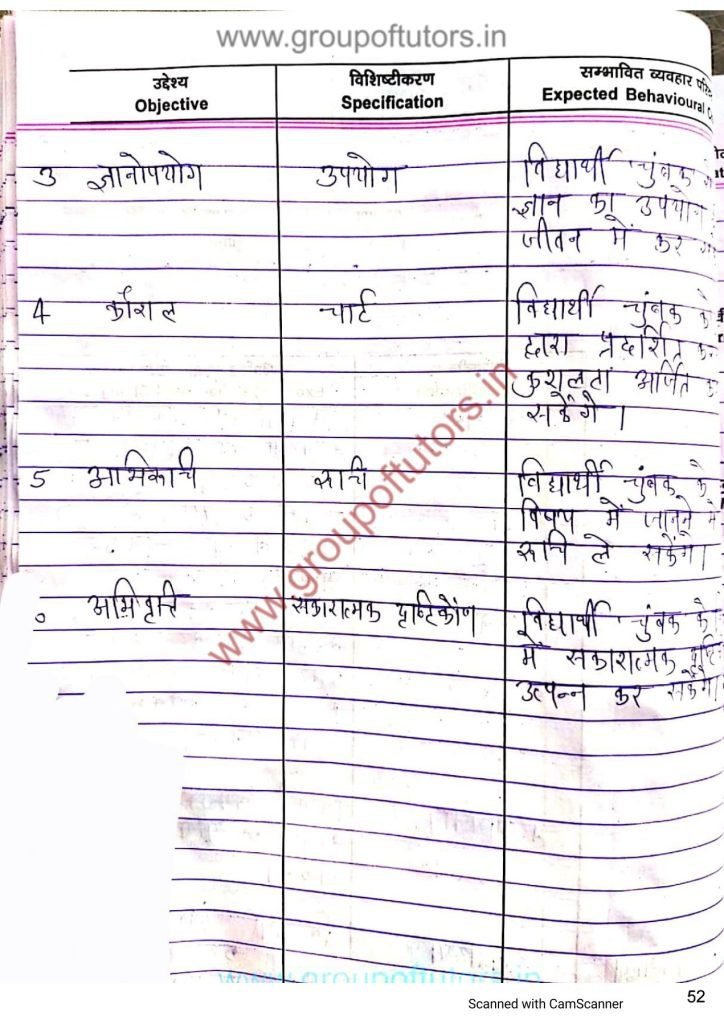 www.groupoftutors.in
उद्देश्य
Objective
विशिष्टीकरण
Specification
सम्भावित व्यवहार
Expected Behavioural
3 ज्ञानोपयोग
उपयोग
विद्यार्थी चुंबक
ज्ञान का उपयोग
जीवन में कर
4 कौशल
चार्ट
विद्यार्थी चुंबक
द्वारा प्रदर्शित
कुशलता अर्जित
सकेंगे ।
5 अभिरूचि
रूचि
विद्यार्थी चुंबक के
विषय में जानने में
रूचि ले सकेंगे।
अभिवृत्ति
सकारात्मक दृष्टिकोण
विद्यार्थी चुंबक के
में सकारात्मक
उत्पन्न कर सकेंगे।
www.groupoftutors.in
www.groupoftutors.in
Scanned with CamScanner
52